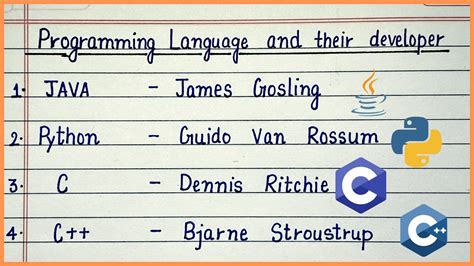 Programming Language and their developer
1. JAVA - James Gosling
2. Python - Guido Van Rossum
3. C - Dennis Ritchie C
4. C++ - Bjarne Stroustrup C++